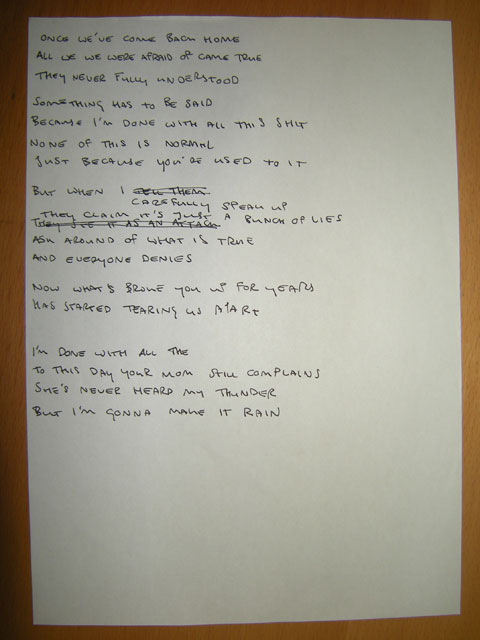 ONCE WE'VE COME BACK HOME
ALL WE WE WERE AFRAID OF CAME TRUE
THEY NEVER FULLY UNDERSTOOD
SOMETHING HAS TO BE SAID
BECAUSE I'M DONE WITH ALL THIS SHIT
NONE OF THIS IS NORMAL
JUST BECAUSE YOU'RE USED TO IT
BUT WHEN I TELL THEM
CAREFULLY SPEAK UP
THEY CLAIM IT'S JUST A BUNCH OF LIES
THEY SEE IT AS AN ATTACK
ASK AROUND OF WHAT IS TRUE
AND EVERYONE DENIES
NOW WHAT'S BROKE YOU UP FOR YEARS
HAS STARTED TEARING US APART
I'M DONE WITH ALL THE
TO THIS DAY YOUR MOM STILL COMPLAINS
SHE'S NEVER HEARD MY THUNDER
BUT I'M GONNA MAKE IT RAIN